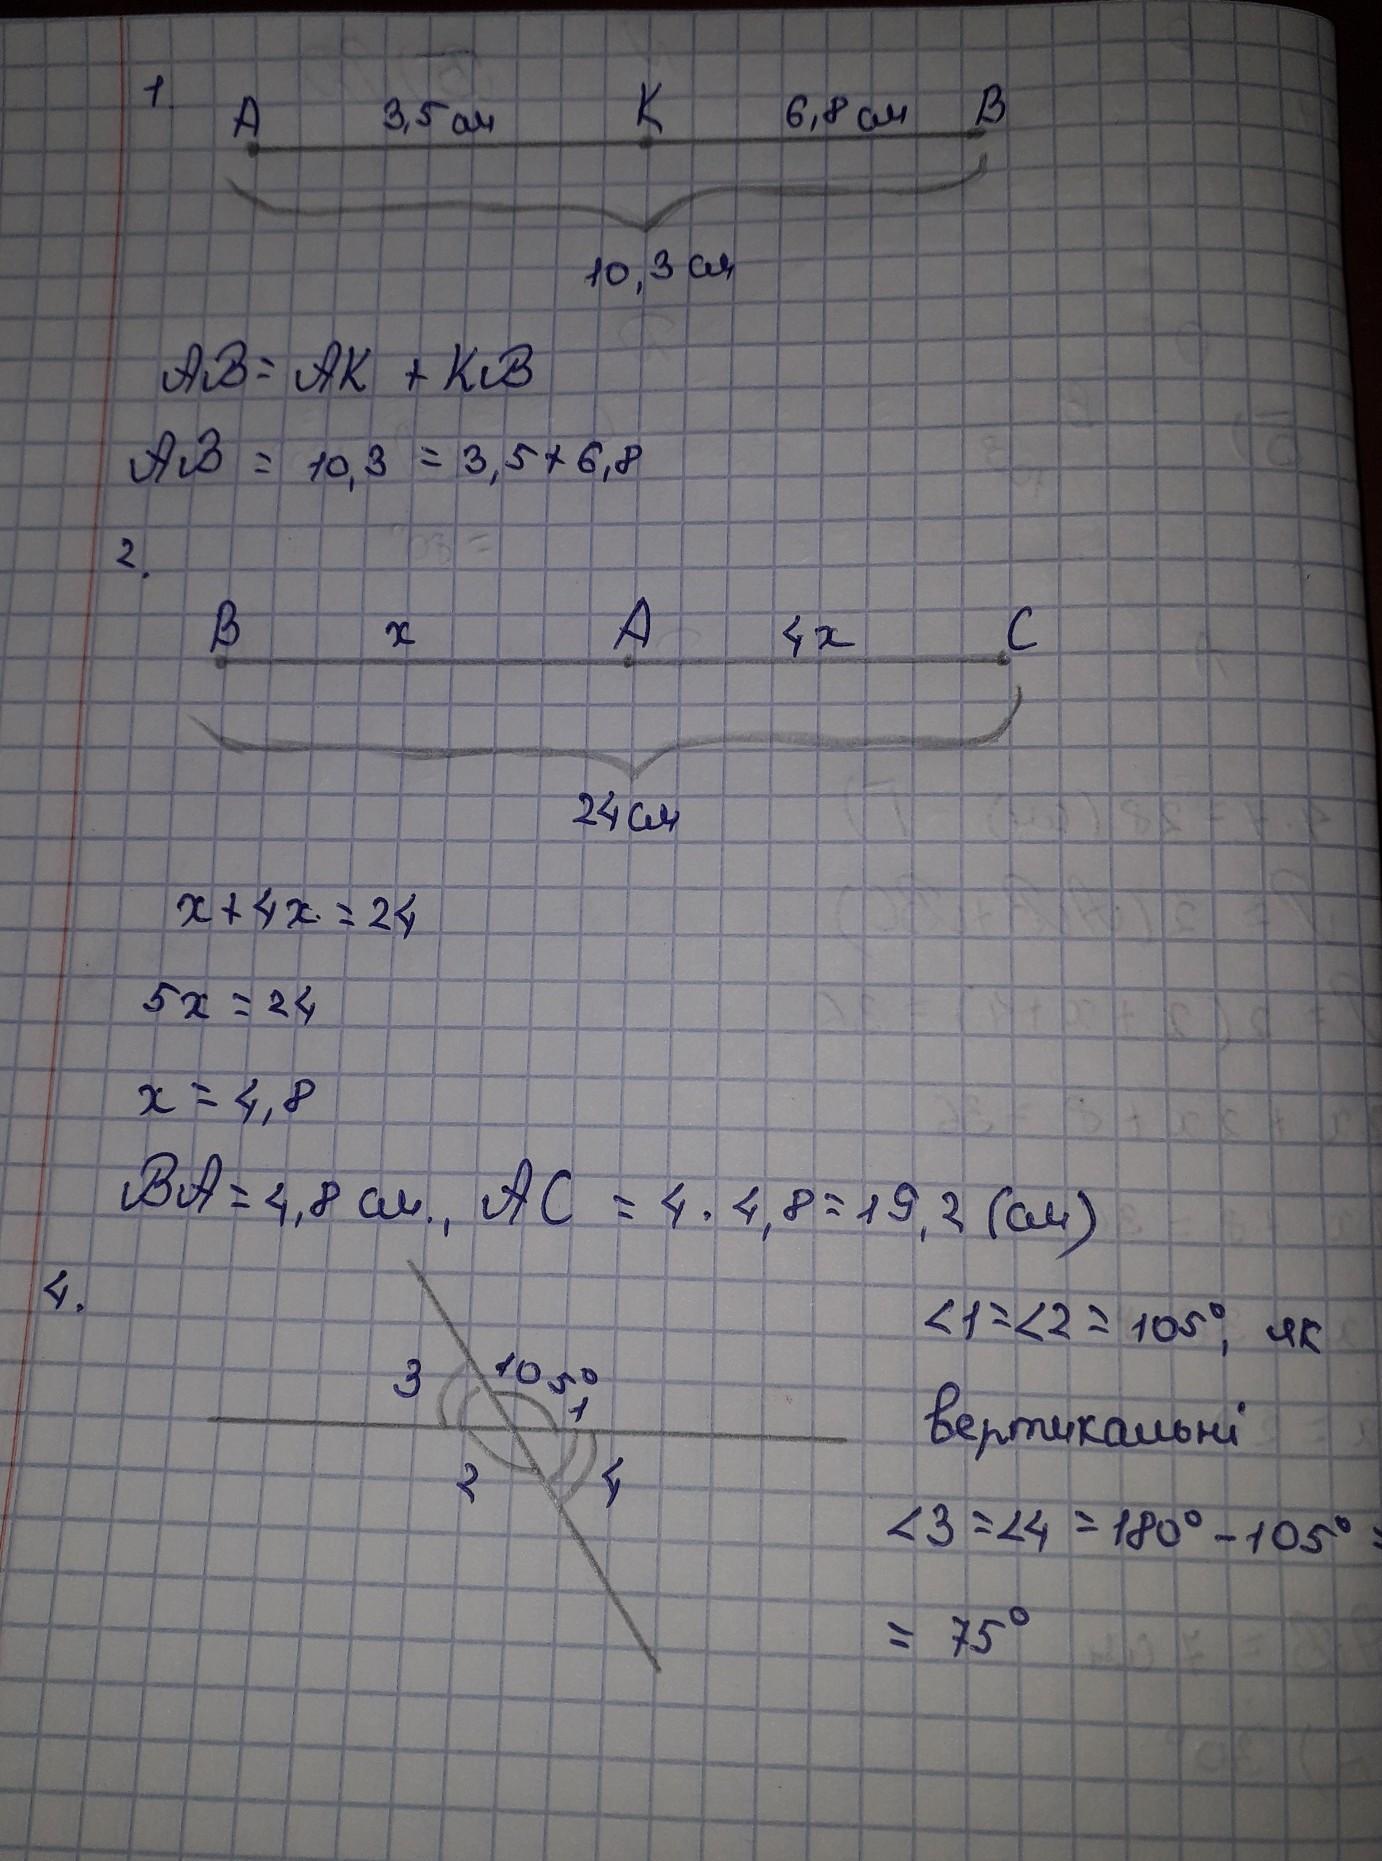 1.
A 3,5 см K 6,8 см B
10,3 см
AB = AK + KB
AB = 10,3 = 3,5 + 6,8
2.
B x A 4x C
24 см
x + 4x = 24
5x = 24
x = 4,8
BA = 4,8 см., AC = 4 . 4,8 = 19,2 (см)
4.
3 105°, 1
2 4
∠1 = ∠2 = 105°, як
вертикальні
∠3 = ∠4 = 180° - 105° =
= 75°